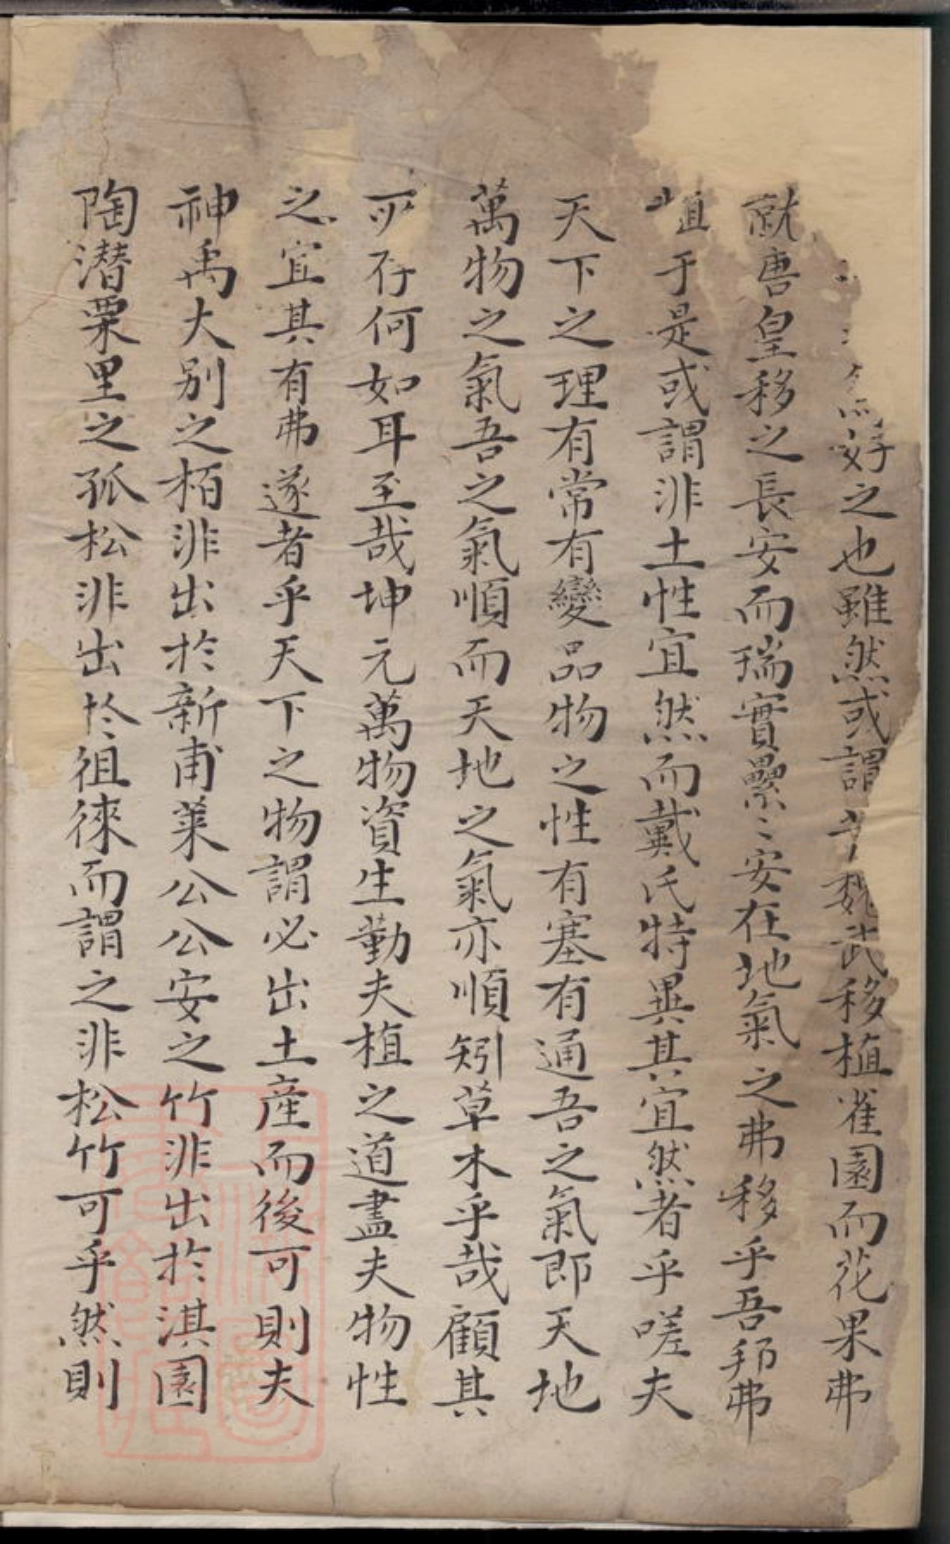 好之也雖然或謂昔魏武移植雀園而花果弗
就唐皇移之長安而瑞實纍〻安在地氣之弗移乎吾邦弗
植于是或謂非土性宜然而戴氏特異其宜然者乎嗟夫
天下之理有常有變品物之性有塞有通吾之氣即天地
萬物之氣吾之氣順而天地之氣亦順矧草木乎哉顧其
所存何如耳至哉坤元萬物資生勤夫植之道盡夫物性
之宜其有弗遂者乎天下之物謂必出土産而後可則夫
神禹大别之栢非出於新甫萊公公安之竹非出於淇園
陶潜栗里之孤松非出於徂徠而謂之非松竹可乎然則